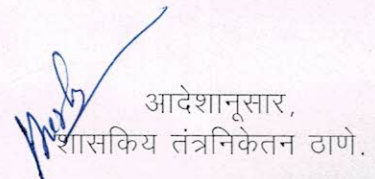 आदेशानूसार,
शासकिय तंत्रनिकेतन ठाणे.